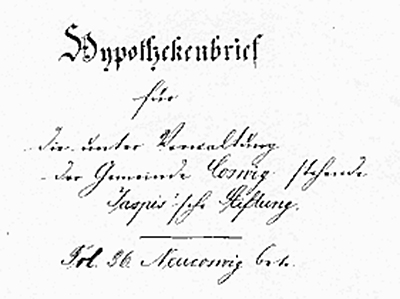 Hypothekenbrief
für
die unter Verwaltung
der Gemeinde Coswig stehende
"Jaspis"sche Stiftung.
Fol. 36 Neucoswig betr.